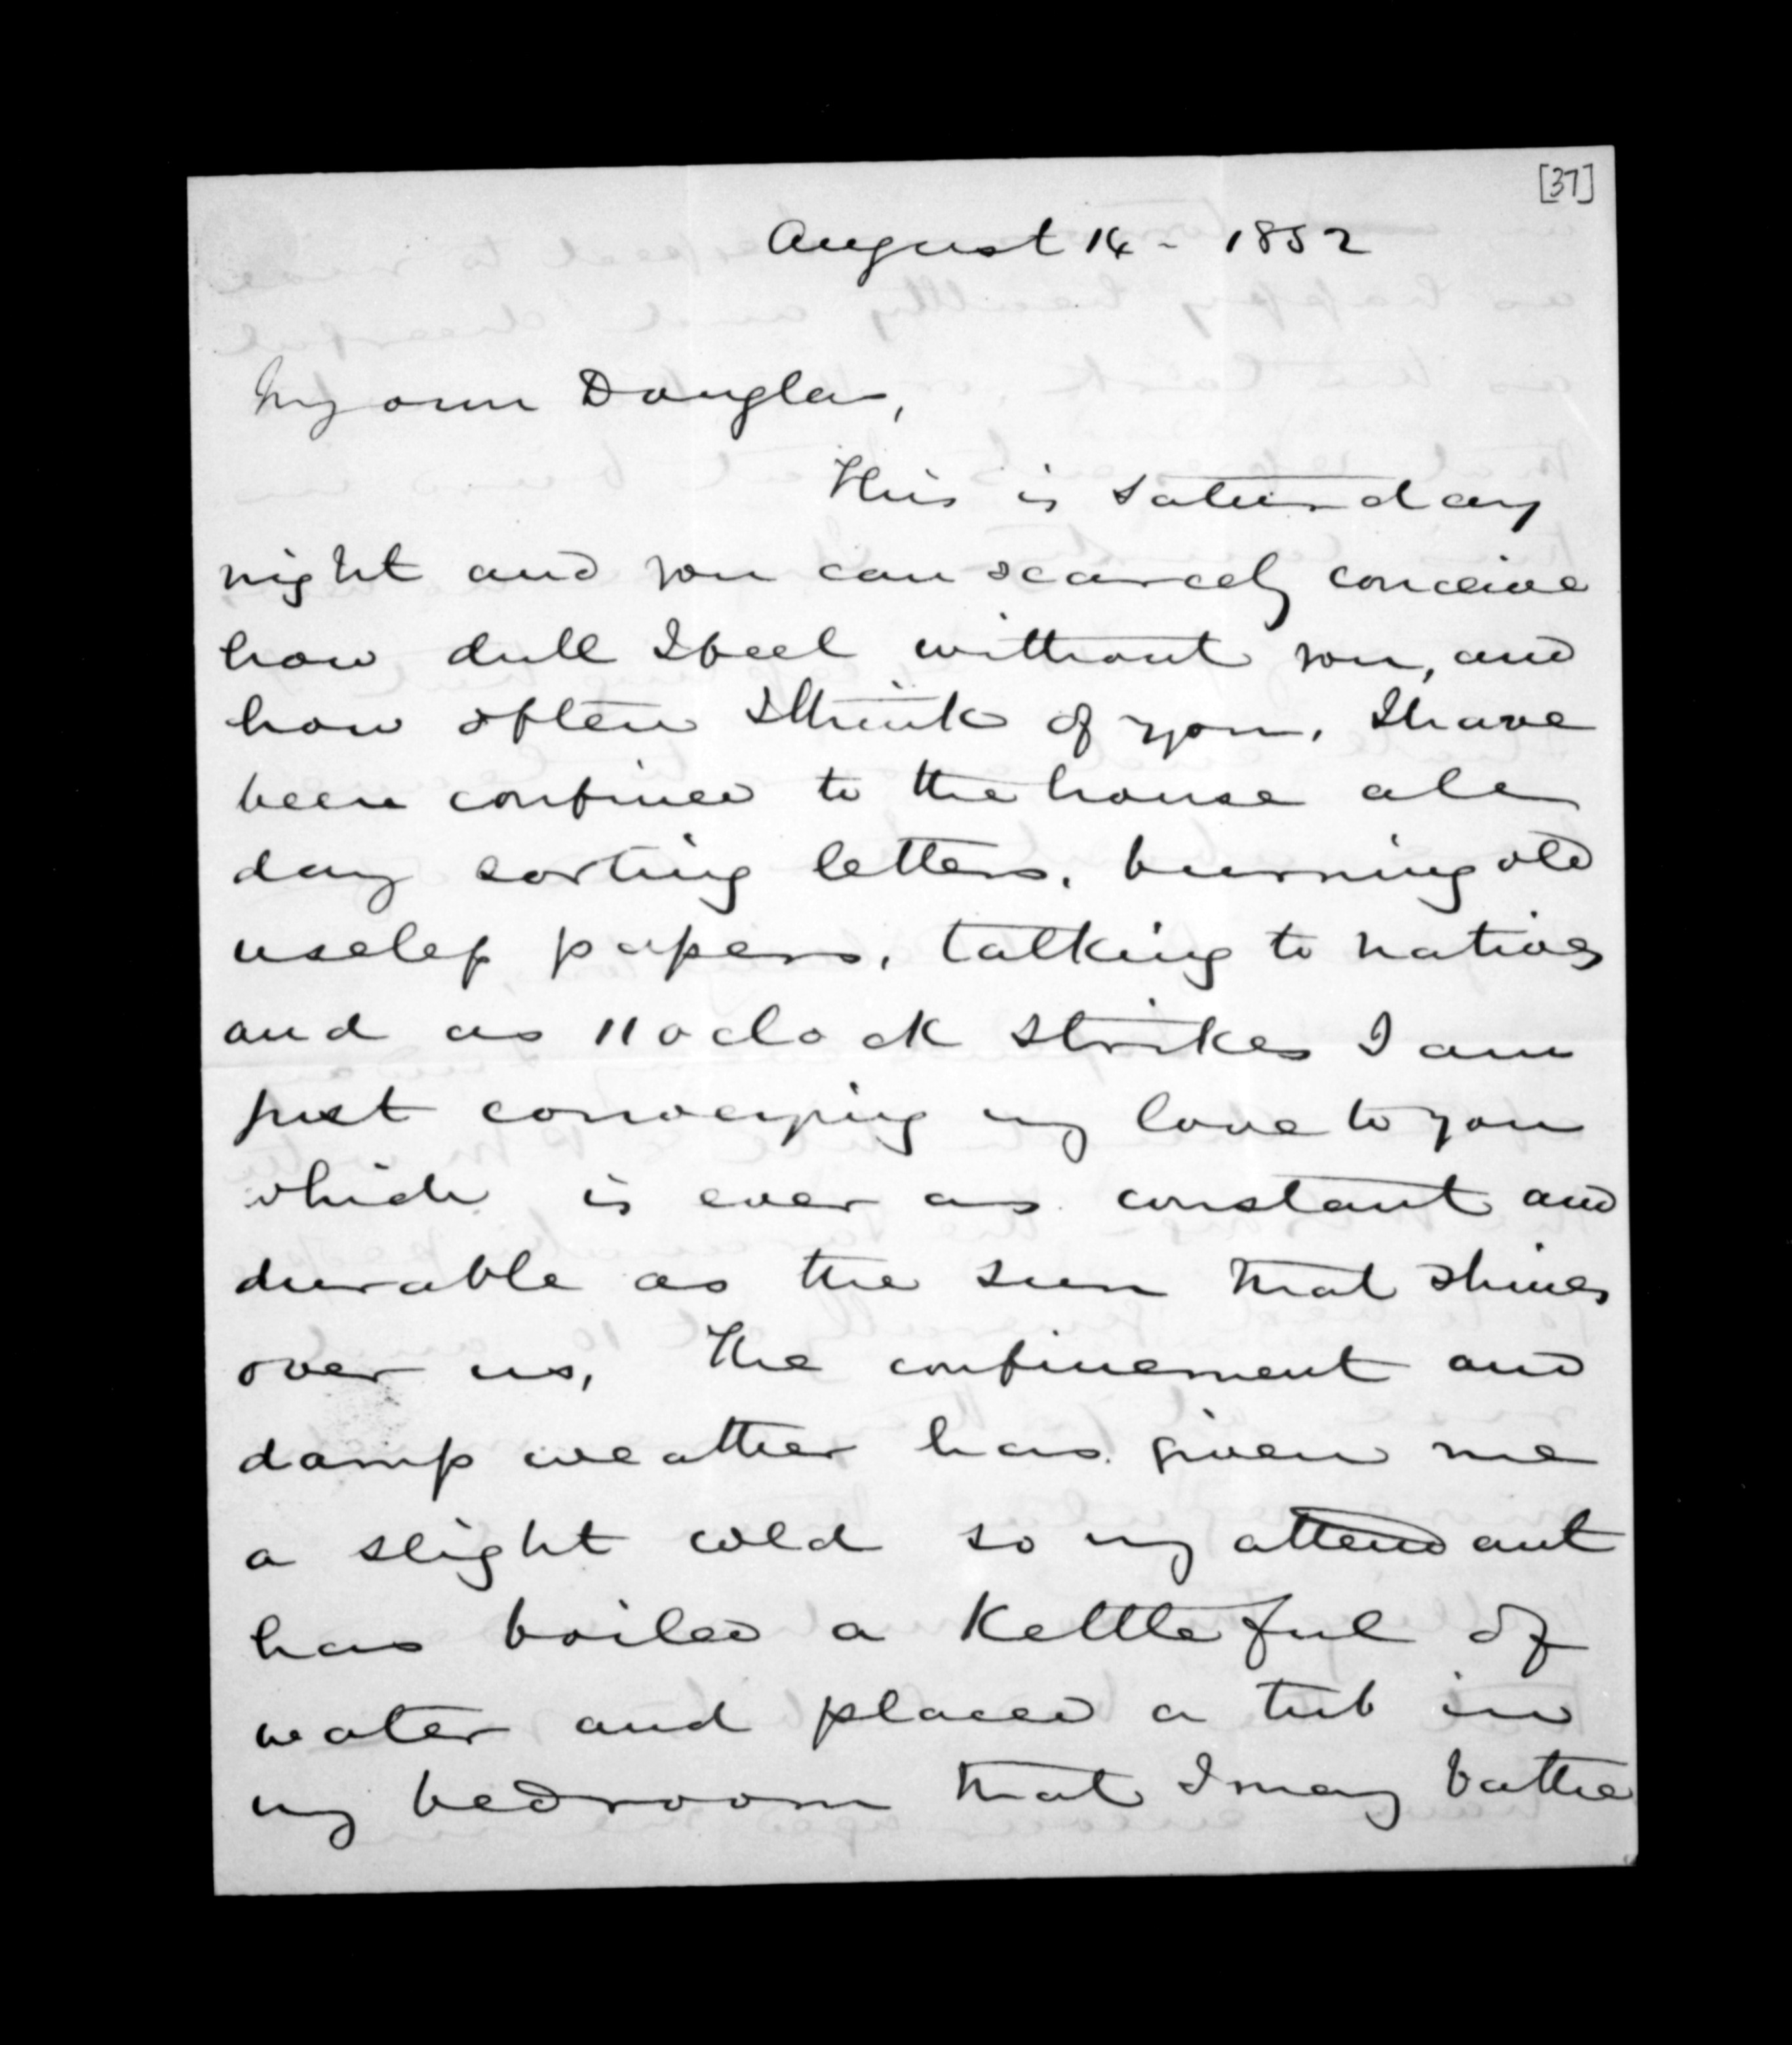 [37]
August 14 - 1852
My own Douglas,
This is Saturday
night and you can scarcely conceive
how dull I feel without you, and
how often I think of you. I have
been confined to the house all
day sorting letters, burning old
useless papers, talking to natives
and as 11 oclock strikes I am
just conveying my love to you
which is ever as constant and
durable as the sun that shines
over us, The confinement and
damp weather has given me
a slight cold so my attendant
has boiled a kettleful of
water and placed a tub in
my bedroom that I may bathe